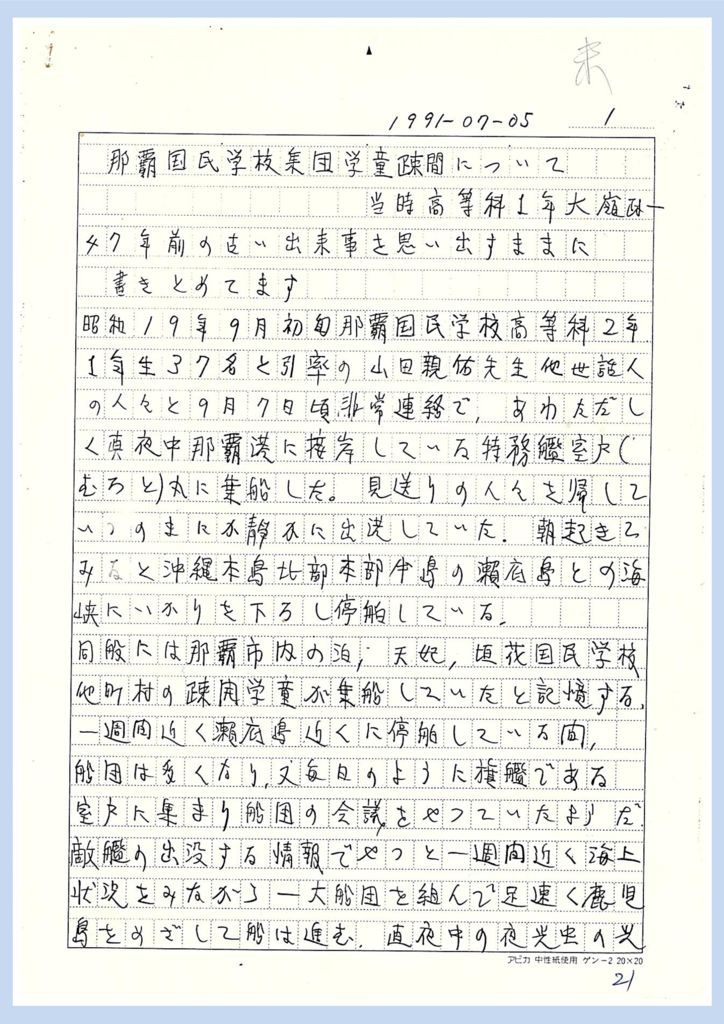 未
1991-07-05　1
那覇国民学校集団学童疎開について
当時高等科1年大嶺政一
47年前の古い出来事を思い出すままに
書きとめてます
昭和19年9月初旬那覇国民学校高等科2年
1年生37名と引率の山田親佑先生他世話人
の人々と9月7日頃非常連絡で，あわただし
く真夜中那覇港に接岸している特務艦室戸（
むろと）丸に乗船した。見送りの人々を帰して
いつのまにか静かに出港していた．朝起きて
みると沖縄本島北部本部半島の瀬底島との海
峡にいかりを下ろし停舶している．
同船には那覇市内の泊，天妃，垣花国民学校
他町村の疎開学童が乗船していたと記憶する．
一週間近く瀬底島近くに停舶している間，
船団は多くなり，又毎日のように旗艦である
室戸に集まり船団の会議をやつていたようだ．
敵艦の出没する情報でやつと一週間近く海上
状況をみながら一大船団を組んで足速く鹿児
島をめざして船は進む．真夜中の夜光虫の光
アピカ 中性紙使用 ゲン-2 20×20
21